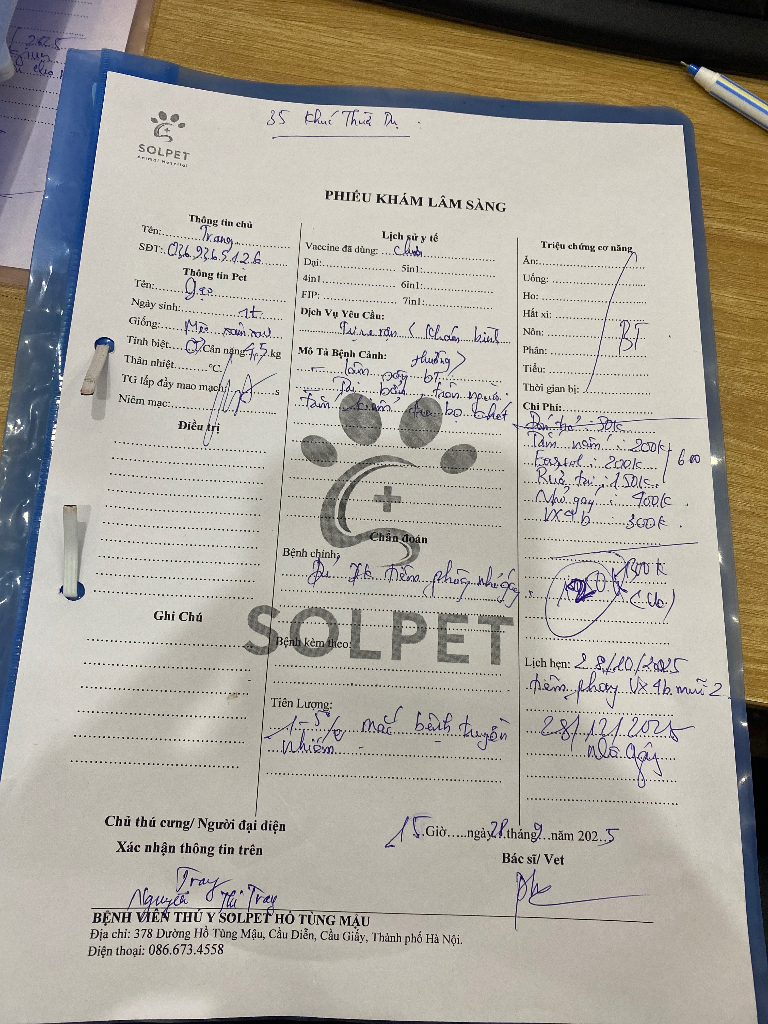 2025
35 Khúc Thừa Dụ
SOLPET
Animal Hospital
PHIẾU KHÁM LÂM SÀNG
Thông tin chủ
Tên: Trang
SĐT: 036.936.5126
Thông tin Pet
Tên: gạo
Ngày sinh: 1t
Giống: Mèo
Tính biệt: Cân nặng 4,5 kg
Thân nhiệt °C
TG lấp đầy mao mạch s
Niêm mạc:
Điều trị
Ghi Chú
Lịch sử y tế
Vaccine đã dùng: chưa
Dại: 5in1:
4in1 6in1:
FIP: 7in1:
Dịch Vụ Yêu Cầu:
Tư vấn (khám bình
thường)
Mô Tả Bệnh Cảnh:
- Tâm BT
- Tai bẩn, trên người
tắm nấm
Chẩn đoán
Bệnh chính:
Đủ đk tiêm phòng nhỏ gáy
SOLPET
Bệnh kèm theo:
Tiên Lượng:
1-5% mắc bệnh truyền
nhiễm
Triệu chứng cơ năng
Ăn:
Uống:
Ho:
Hắt xì:
Nôn: BT
Phân:
Tiểu:
Thời gian bị:
Chi Phí:
50k
Tắm nấm: 200k
200k 600
Rửa tai: 150k
Nhỏ gáy: 400k
VX4b 300k
1300k
Lịch hẹn: 28/10/2025
tiêm phòng VX4b mũi 2
28/12/2025
nhỏ gáy
Chủ thú cưng/ Người đại diện
Xác nhận thông tin trên
15 Giờ.....ngày 28 tháng 9 năm 2025
Bác sĩ/ Vet
Trang
Nguyễn Thị Trang
BỆNH VIỆN THÚ Y SOLPET HỒ TÙNG MẬU
Địa chỉ: 378 Đường Hồ Tùng Mậu, Cầu Diễn, Cầu Giấy, Thành phố Hà Nội.
Điện thoại: 086.673.4558